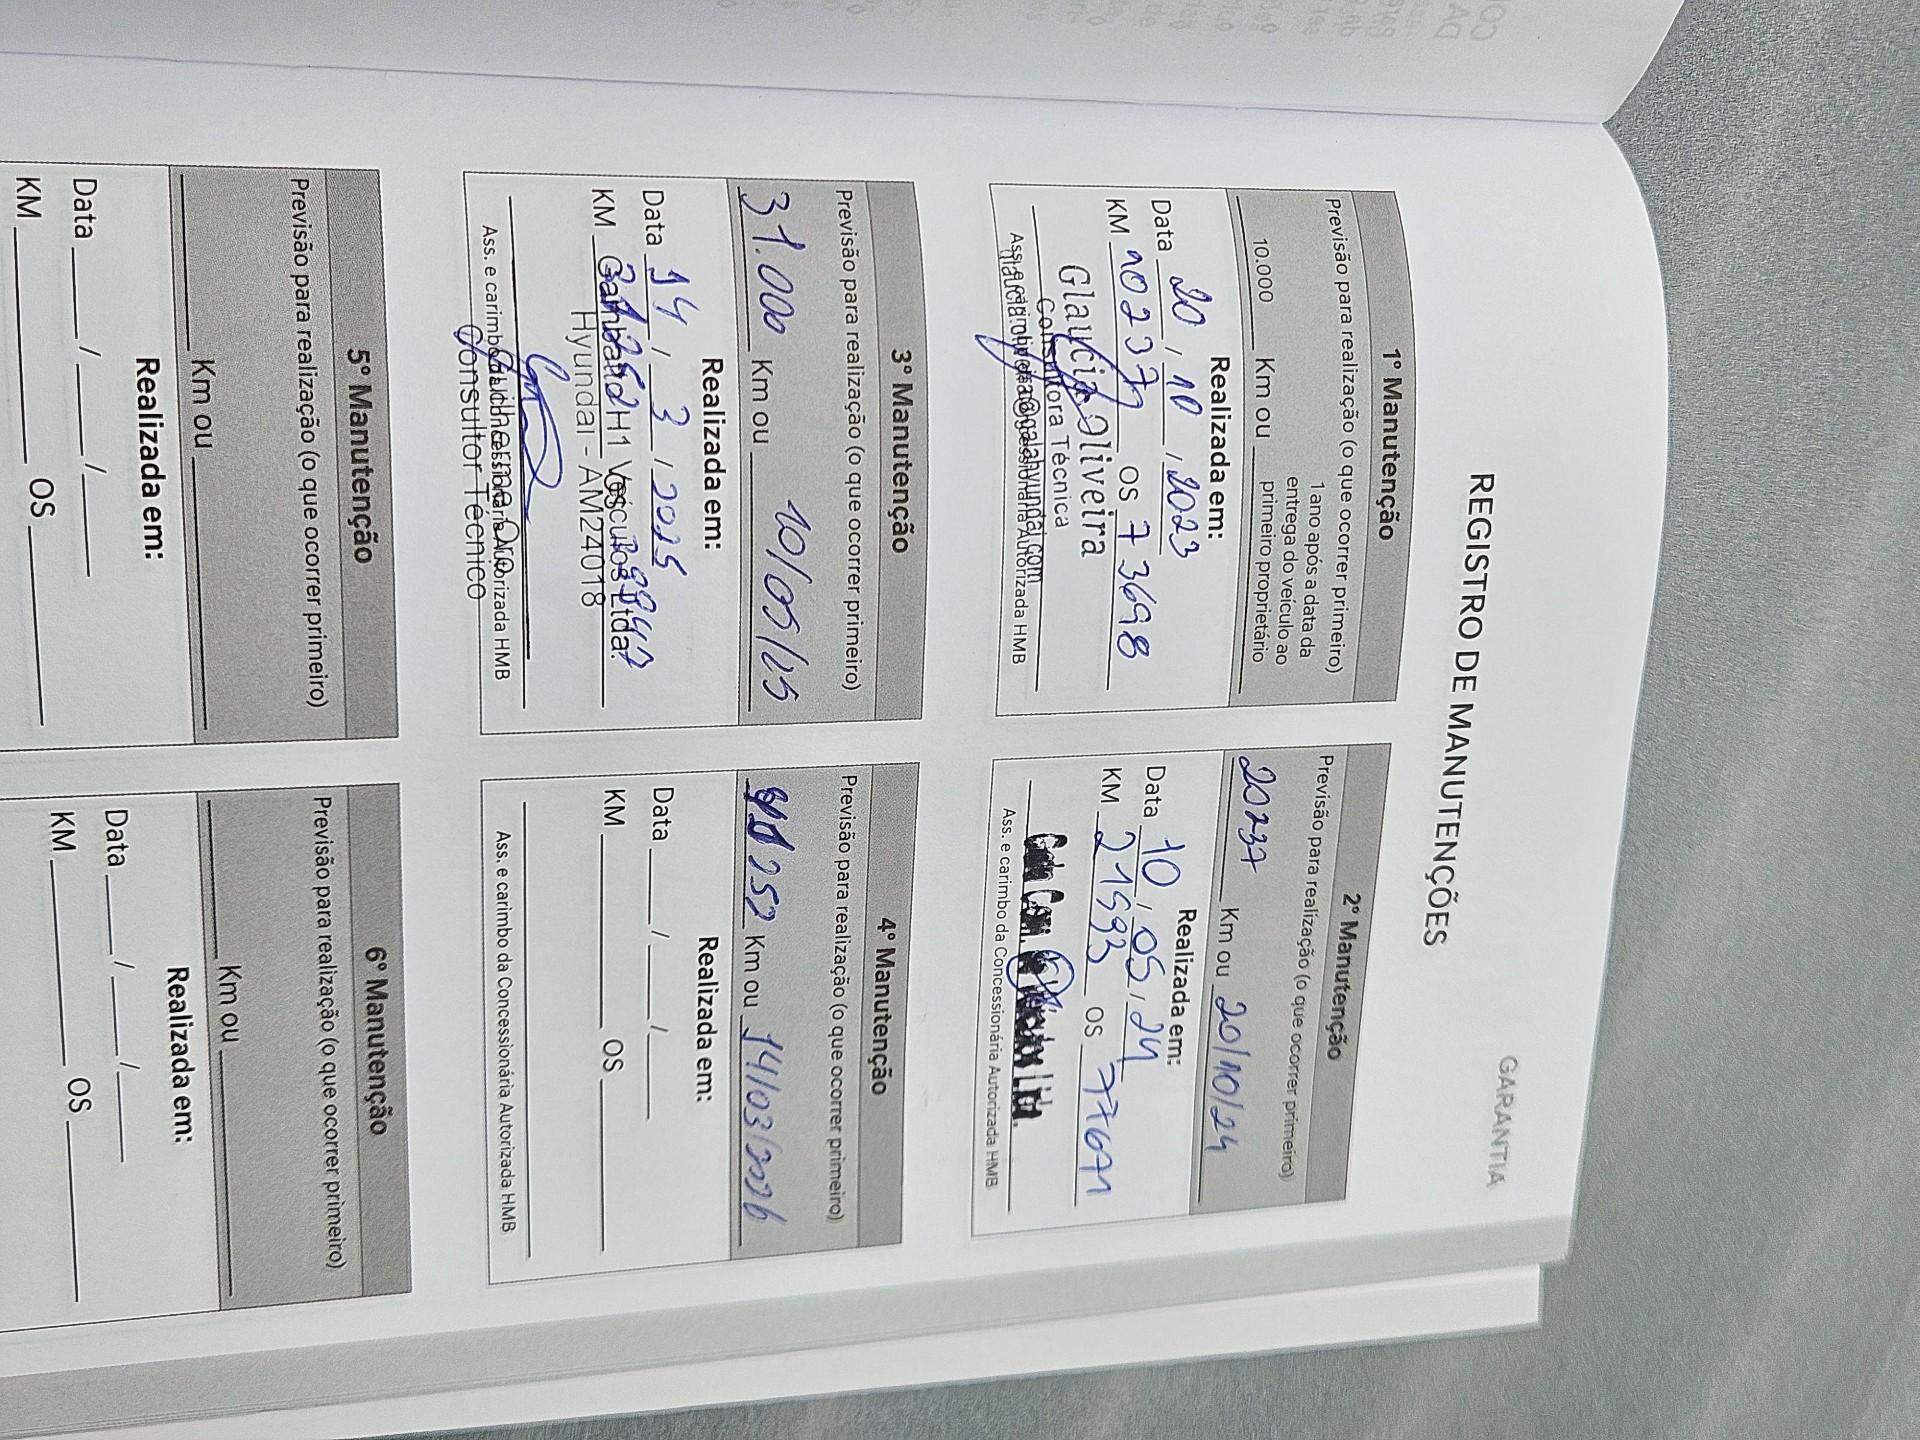 GARANTIA
REGISTRO DE MANUTENÇÕES
1º Manutenção
Previsão para realização (o que ocorrer primeiro)
10.000 Km ou 1 ano após a data da entrega do veículo ao primeiro proprietário
Realizada em:
Data 20 / 10 / 2023
KM 10237 OS 73698
Glaucia Oliveira
Consultora Técnica
Ass. e carimbo da Concessionária Autorizada HMB
2º Manutenção
Previsão para realização (o que ocorrer primeiro)
20237 Km ou 20/10/24
Realizada em:
Data 10 / 05 / 24
KM 21593 OS 77671
Ltda.
Ass. e carimbo da Concessionária Autorizada HMB
3º Manutenção
Previsão para realização (o que ocorrer primeiro)
31.000 Km ou 10/05/25
Realizada em:
Data 14 / 3 / 2025
KM OS
H1 Veículos Ltda.
Hyundai - AM24018
Ass. e carimbo da Concessionária Autorizada HMB
Consultor Técnico
4º Manutenção
Previsão para realização (o que ocorrer primeiro)
Km ou 14/03/2026
Realizada em:
Data ___ / ___ / ___
KM ______ OS ______
Ass. e carimbo da Concessionária Autorizada HMB
5º Manutenção
Previsão para realização (o que ocorrer primeiro)
______ Km ou ______
Realizada em:
Data ___ / ___ / ___
KM ______ OS ______
6º Manutenção
Previsão para realização (o que ocorrer primeiro)
______ Km ou ______
Realizada em:
Data ___ / ___ / ___
KM ______ OS ______